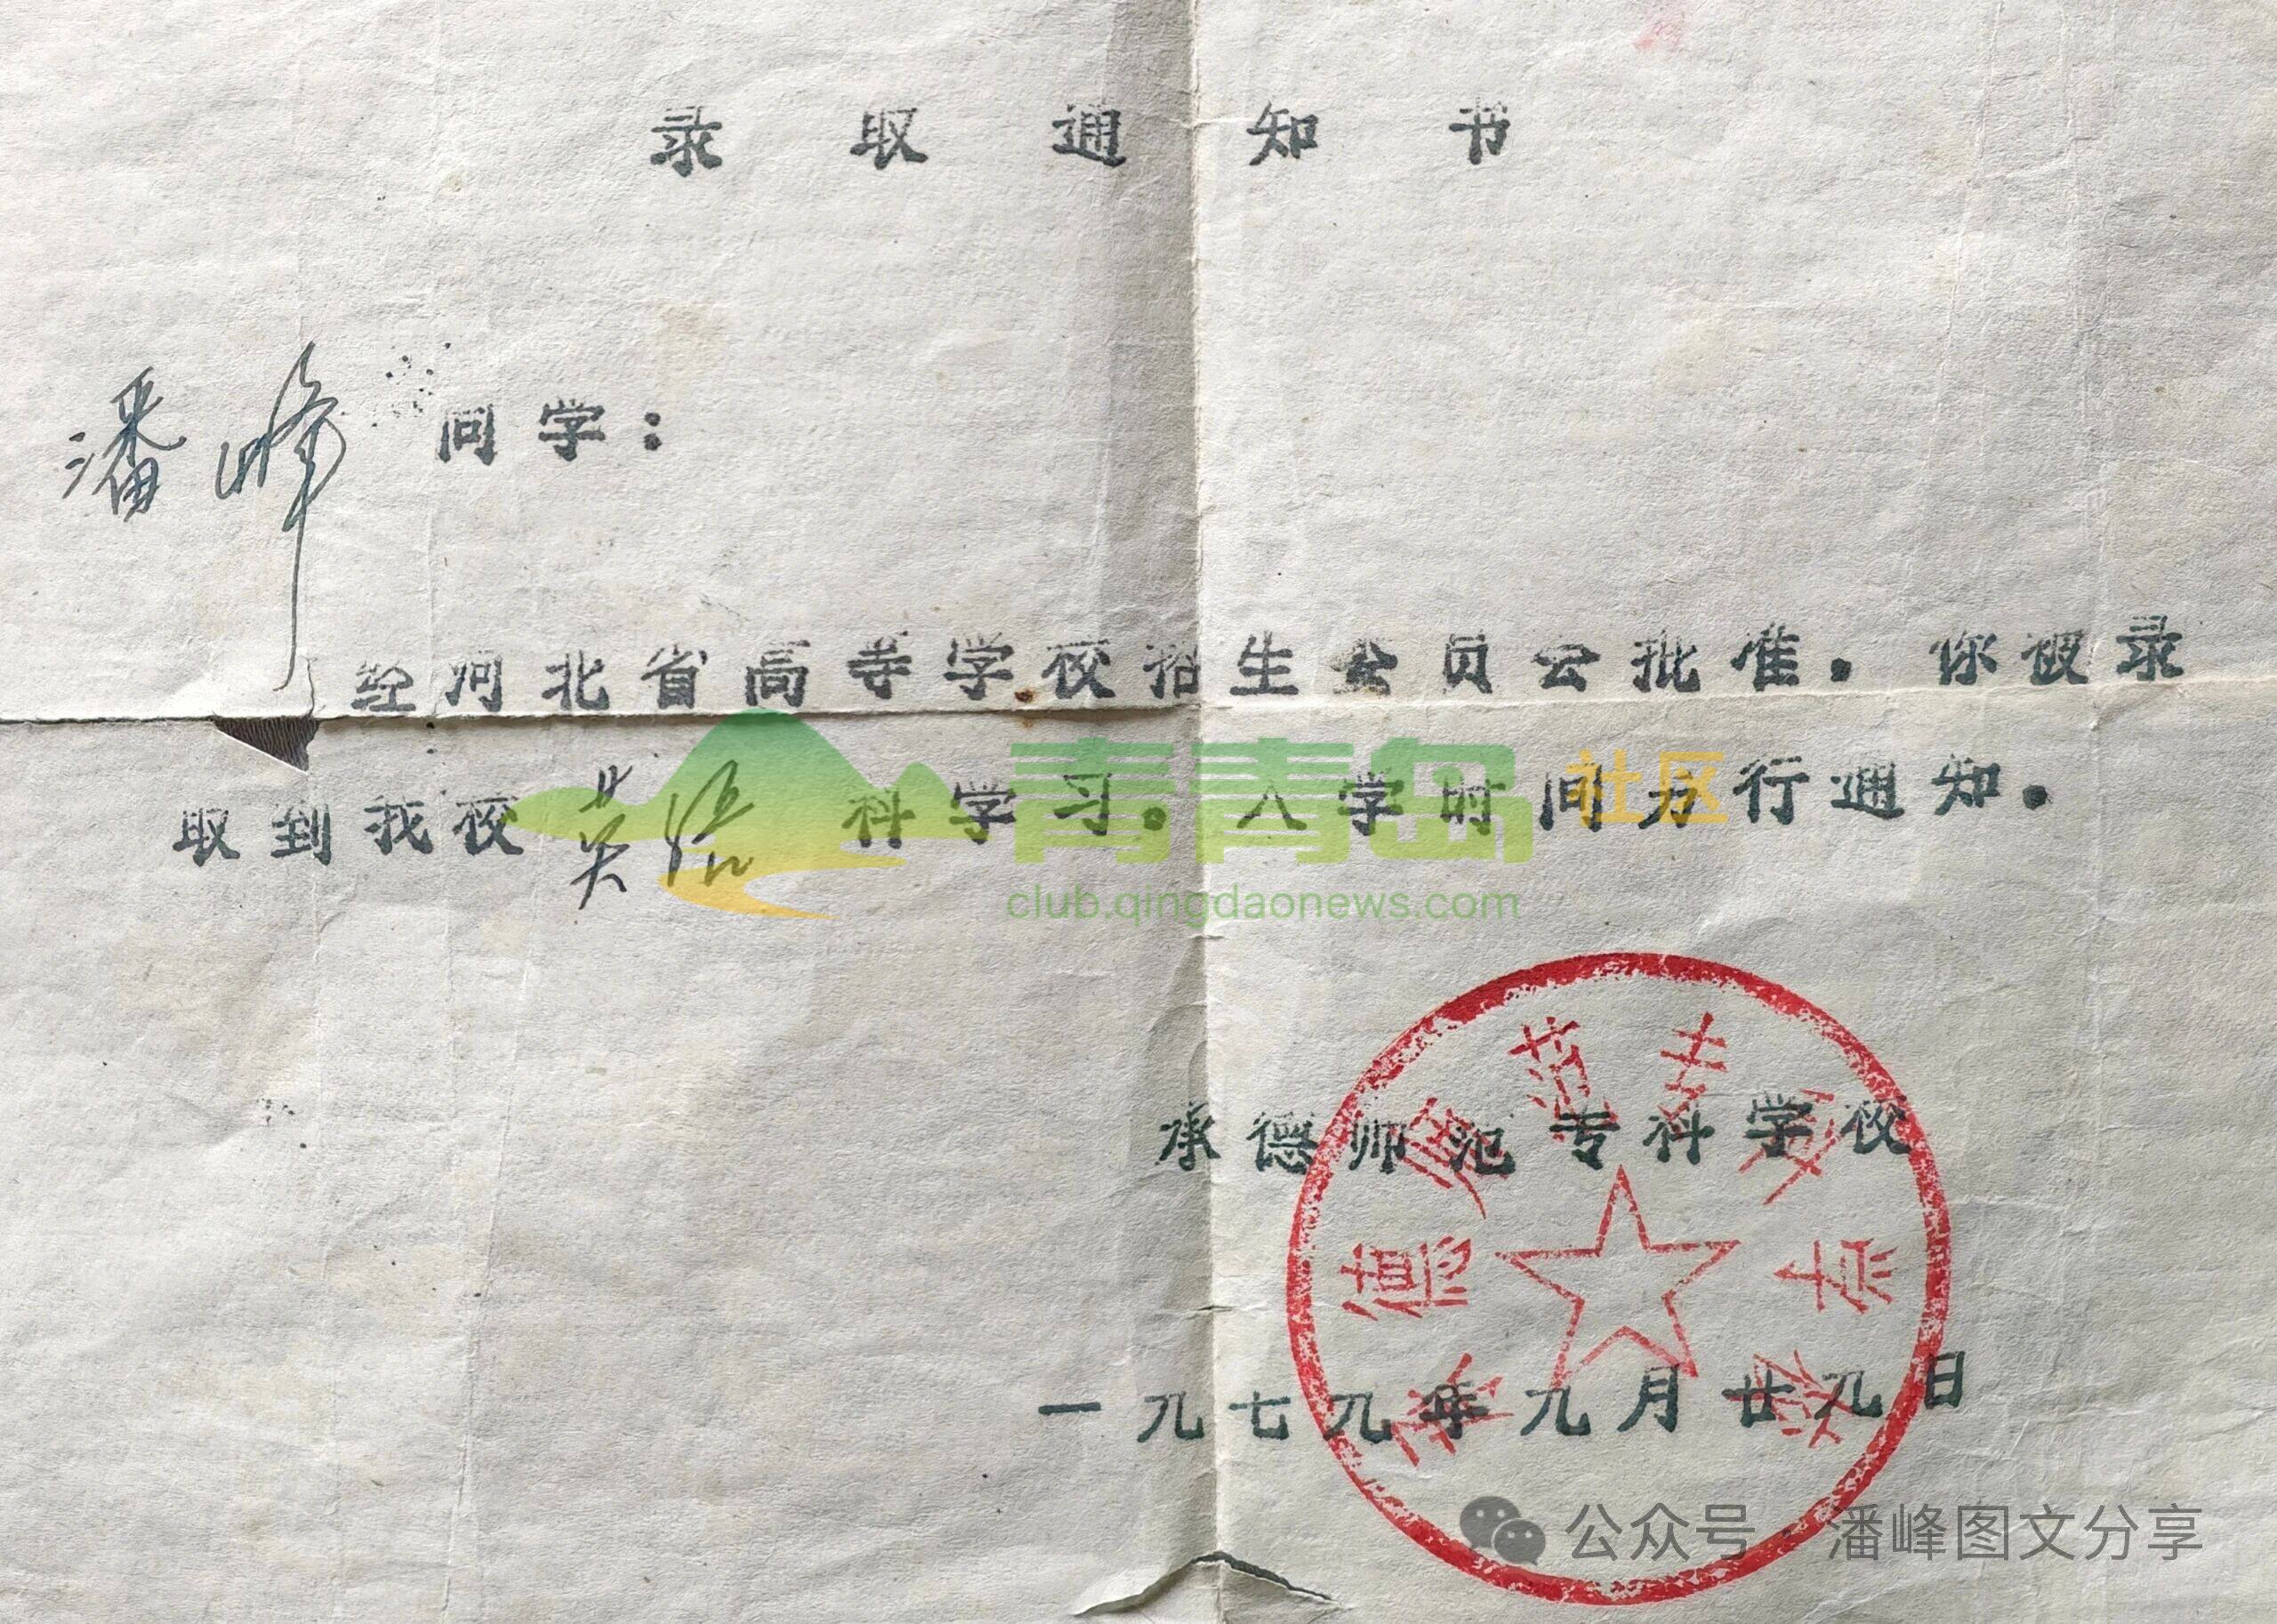 录取通知书
潘峰 同学：
经河北省高等学校招生委员会批准。你被录
取到我校英语科学习。入学时间另行通知。
青青岛社区
club.qingdaonews.com
承德师范专科学校
承德师范专科学校
一九七九年九月廿九日
公众号·潘峰图文分享